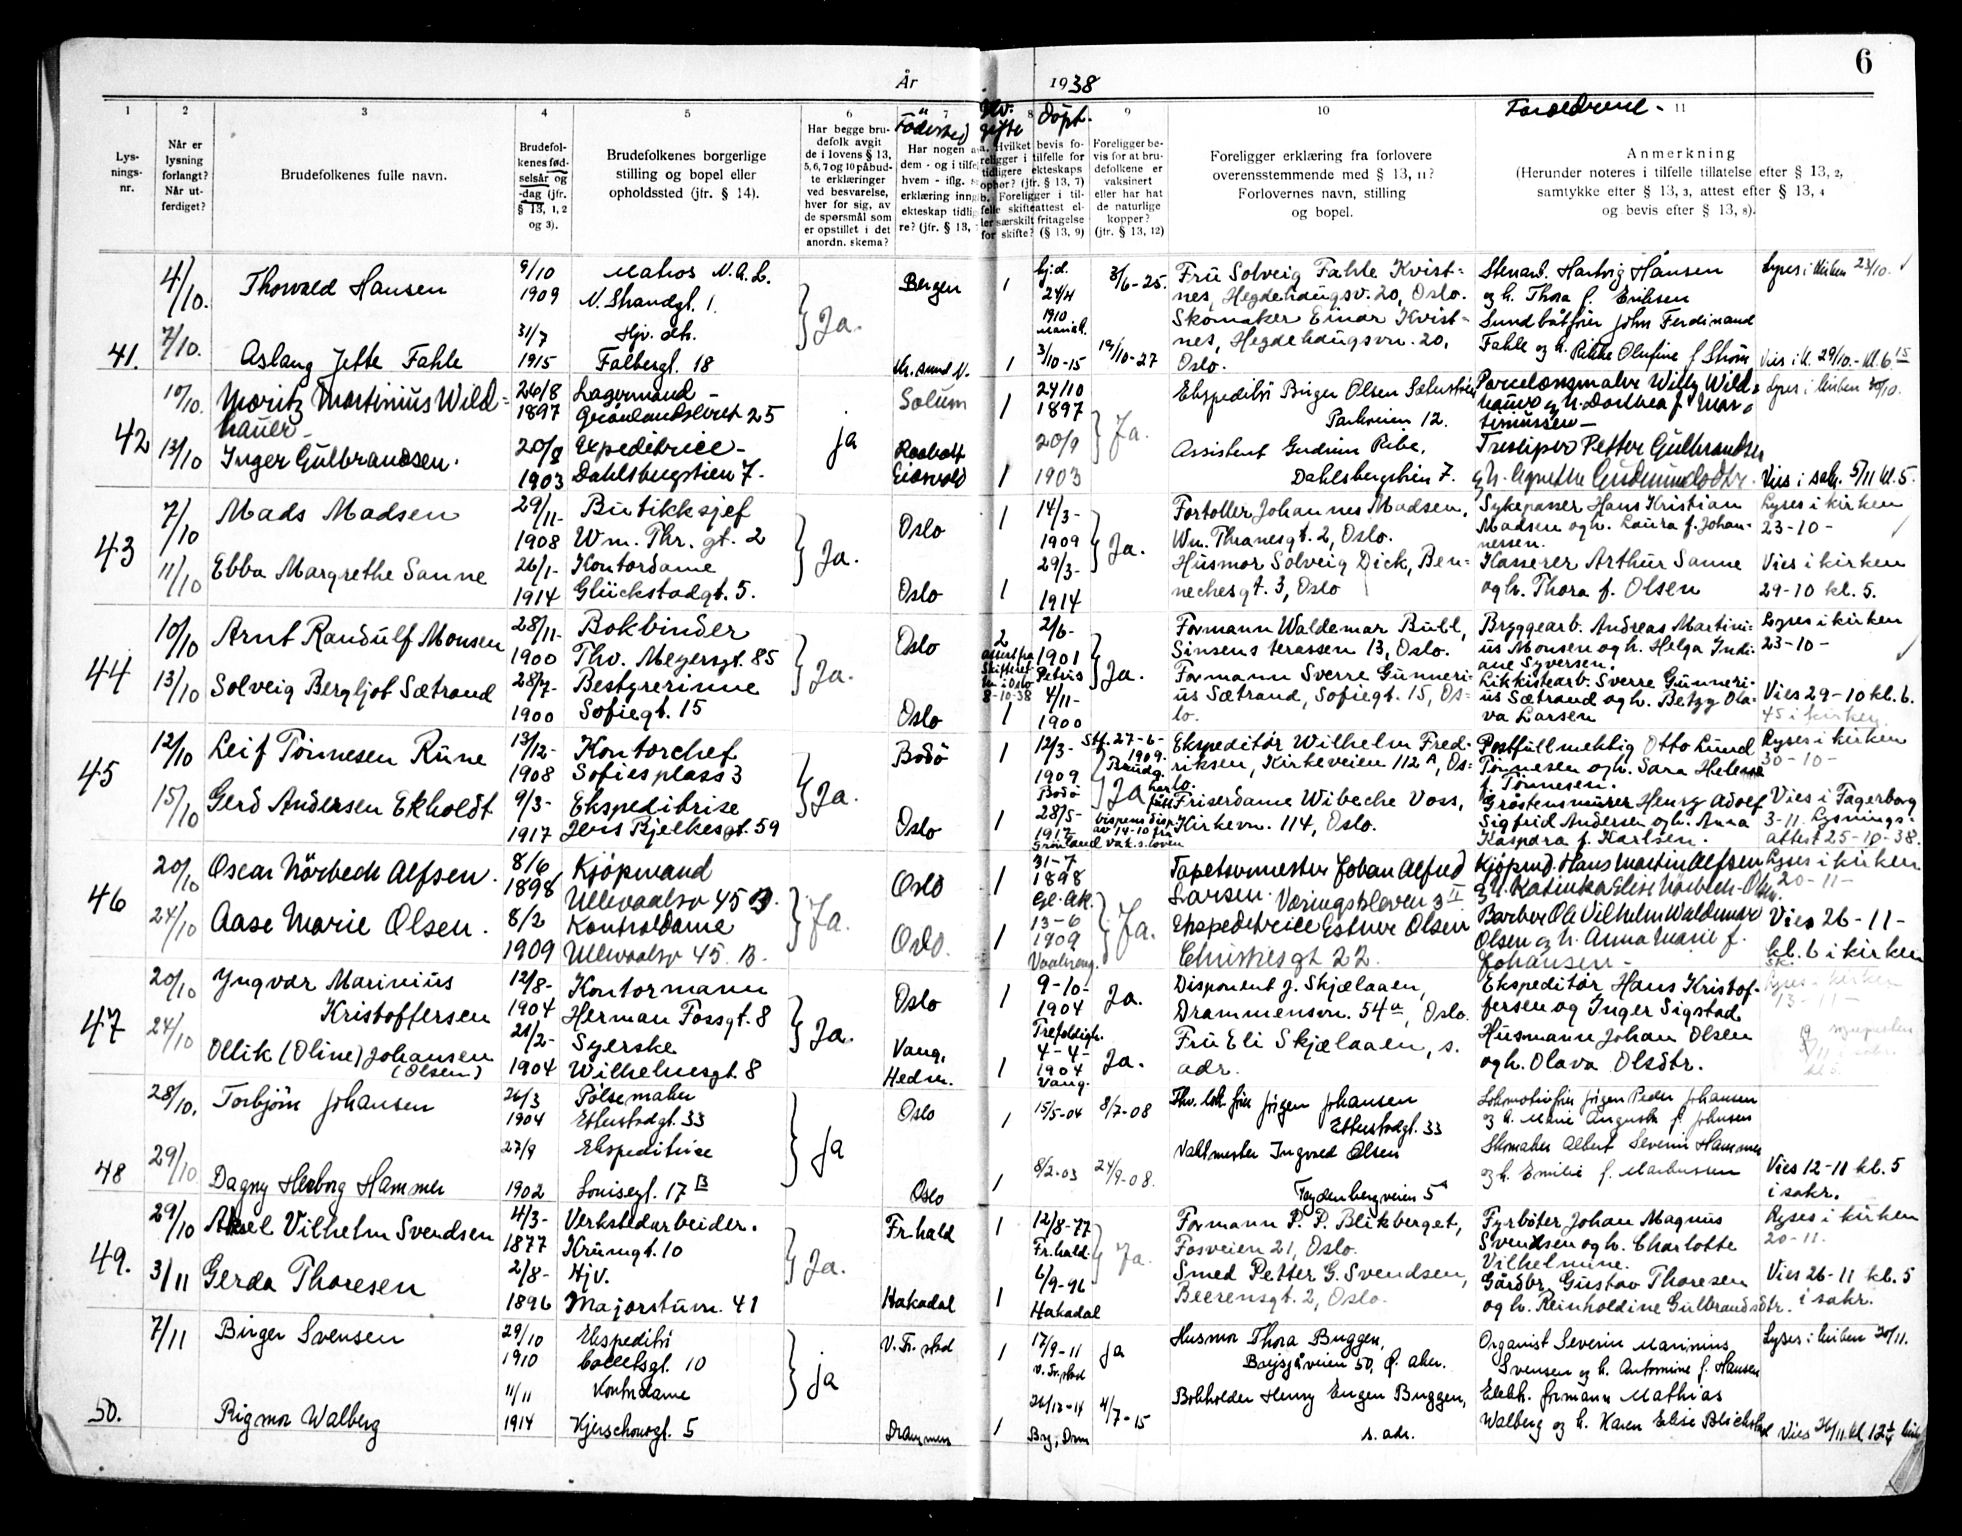 År 1938
6
1 2 3 4 5 6 7 8 9 10 11
Fødested
Hv. gifte
Döpt.
Foreldrene -
Lys-
nings-
nr.
Når er
lysning
forlangt?
Når ut-
ferdiget?
Brudefolkenes fulle navn.
Brudefol-
kenes fød-
selsår og
-dag (jfr.
§ 13, 1, 2
og 3).
Brudefolkenes borgerlige
stilling og bopel eller
opholdssted (jfr. § 14).
Har begge bru-
defolk avgit
de i lovens § 13,
5, 6, 7 og 10 påbud-
te erklæringer
ved besvarelse,
hver for sig, av
de spørsmål som
er opstillet i det
anordn. skema?
Har nogen a
dem - og i tilfe
hvem - iflg.
erklæring inng
ekteskap tidlig
re? (jfr. § 13,
a. Hvilket bevis fo-
religger i tilfelle for
tidligere ekteskaps
ophør? (jfr. § 13, 7)
b. Foreligger i til-
felle skifteattest el-
ler særskilt fritagelse
for skifte? (§ 13, 9)
Foreligger be-
vis for at bru-
defolkene er
vaksinert
eller har hat
de naturlige
kopper?
(jfr. § 13, 12)
Foreligger erklæring fra forlovere
overensstemmende med § 13, 11?
Forlovernes navn, stilling
og bopel.
Anmerkning
(Herunder noteres i tilfelle tillatelse efter § 13, 2,
samtykke efter § 13, 3, attest efter § 13, 4
og bevis efter § 13, 8).
41.
4/10. Thorvald Hansen 9/10 1909 Matros N.A.L. N. Strandgt. 1. Ja. Bergen 1 24/4 1910 3/6-25. Fru Solveig Fahle Kvist-
nes, Hegdehaugsv. 20, Oslo. Stenarb. Hartvig Hansen
og h. Thora f. Eriksen Lyses i kirken 23/10.
7/10. Aslaug Jette Fahle 31/7 1915 Hjv. dtr. Falbergt. 18 Kr. sund N. 1 3/10-15 19/10-27 Skomaker Einar Kvist-
nes, Hegdehaugsvn. 20,
Oslo. Sundbåtfører John Ferdinand
Fahle og h. Rikke Olufine f. Strøm Vies i k. 29/10.- kl. 6 15
42
10/10. Moritz Martinius Wild-
hauer - 26/8 1897 Lagermand - Grønlandsleret 25 ja Solum 1 24/10 1897 Ja. Ekspeditör Birger Olsen
Parkveien 12. Porcelænsmaler Willy Wild-
hauer og h. Dorthea f. Mar-
tinussen - Lyses i kirken 30/10.
13/10 Inger Gulbrandsen. 20/8 1903 Expeditrice - Dahlsbergstien 7. Raaholt Eidsvold 1 20/9 1903 Assistent Gudrun Ribe,
Dahlsbergstien 7. Træsliper Petter Gulbrandsen
og h. Agnethe Gudmundsdtr. Vies i sakr. 5/11 kl. 5.
43
7/10 Mads Madsen 29/11- 1908 Butikksjef Wm. Thr. gt. 2 Ja. Oslo 1 14/3- 1909 Ja. Fortoller Johannes Madsen,
Wm. Thranesgt. 2, Oslo. Sykepasser Hans Kristian
Madsen og h. Laura f. Johan-
nessen. Lyses i kirken
23-10-
11/10 Ebba Margrethe Sanne 26/1- 1914 Kontordame Glückstadgt. 5. Oslo 1 29/3- 1914 Husmor Solveig Dick, Ben-
nechesgt. 3, Oslo Kasserer Arthur Sanne
og h. Thora f. Olsen Vies i kirken
29-10 kl. 5.
44
10/10 Arnt Randulf Monsen 28/11- 1900 Bokbinder Thv. Meyersgt. 85 Ja. Oslo 2
attest fra
Skifteret-
ten i Oslo
8-10-38 2/6- 1901 Petrus Ja. Formann Waldemar Buhl,
Sinsens terassen 13, Oslo. Bryggearb. Andreas Martini-
us Monsen og h. Helga Indi-
ane Syversen. Lyses i kirken
23-10-
13/10 Solveig Bergljot Sætrand 28/7- 1900 Bestyrerinne Sofiegt. 15 Oslo 1 4/11- 1900 Formann Sverre Gunneri-
us Sætrand, Sofiegt. 15, Os-
lo. Likkistearb. Sverre Gunneri-
us Sætrand og h. Betzy Ola-
va Larsen Vies 29-10 kl. 6.
45 i kirken.
45
12/10 Leif Tönnesen Rüne 13/12- 1908 Kontorchef Sofies plass 3 Ja. Bodö 1 12/3- 1909 Bodö Stf. 27-6-
1909.
Brudg. Ja Ekspeditör Wilhelm Fred-
riksen, Kirkeveien 112 A, Os-
lo. Postfullmektig Otto Lund
Tönnesen og h. Sara Helene
f. Tönnesen. Lyses i kirken
30-10-
15/10 Gerd Andersen Ekholdt 9/3- 1917 Ekspeditrise Jens Bjelkesgt. 59 Oslo 1 28/5- 1917 Grönland bispens disp.
av 14-10 fra
vak.s.loven Friserdame Wibeche Voss,
Kirkevn. 114, Oslo. Gråstensmurer Henry Adolf
Sigfrid Andersen og h. Anna
Kaspara f. Karlsen. Vies i Fagerborg
3-11. Lysnings-
attest 25-10-38.
46
20/10 Oscar Nörbech Alfsen. 8/6 1898 Kjöpmand Ullevaalsv 45 B. Ja. Oslo 1 31-7 1898 Gl. Ak. Ja. Tapetsermester Johan Alfred
Larsen. Væringskleven 3 II Kjöpmd. Hans Martin Alfsen
og h. Katinka Elise Nörbech - Lyses i kirken
20-11-
24/10 Aase Marie Olsen. 8/2 1909 Kontordame Ullevaalsv 45. B. Oslo. 1 13-6 1909 Vaalreng. Ekspeditrice Esther Olsen
Christiesgt 22. Barber Ole Vilhelm Waldemar
Olsen og h. Anna Marie f.
Johansen - Vies 26-11-
kl. 6 i kirken
47
20/10 Yngvar Marinius
Kristoffersen 12/8- 1904 Kontormann Herman Fossgt. 8 Ja. Oslo 1 9-10- 1904 Trefoldigh. Ja. Disponent J. Skjælaaen,
Drammensvn. 54 a, Oslo. Ekspeditör Hans Kristof-
fersen og Inger Sigstad Lyses i kirken
13-11-
24/10 Ollik (Oline) Johansen
(Olsen) 21/2- 1904 Syerske Wilhelmsgt. 8 Vang, Hedm. 1 4-4- 1904 Vang. Ja. Fru Eli Skjælaaen, s.
adr. Husmann Johan Olsen
og h. Olava Olsdtr.
48
28/10. Torbjörn Johansen 26/3 1904 Pölsemaker Etterstadgt. 33 Ja Oslo 1 15/5-04 8/7-08 Fhv. lok. fører Jörgen Johansen
Etterstadgt. 33 Lokomotivfører Jörgen Peder Johansen
og h. Marie Augusta f. Johnsen
29/10. Dagny Herborg Hammer 27/9 1902 Ekspeditrise Louisegt. 17 B Oslo 1 8/2-03 24/9-08. Vaktmester Ingvald Olsen
Frydenbergveien 5 Skomaker Albert Severin Hammer
og h. Emilie f. Markussen Vies 12-11 kl. 5
i sakr.
49.
29/10 Aksel Vilhelm Svendsen 4/3- 1877 Verkstedarbeider. Krumgt. 10 Ja. Fr.hald 1 12/8-77 Fr.hald Ja. Formann P. P. Blikberget,
Fosveien 21, Oslo. Fyrböter Johan Magnus
Svendsen og h. Charlotte
Vilhelmine. Lyses i kirken
20-11.
3/11 Gerda Thoresen 2/8- 1896 Hjv. Majorstuvn. 41 Hakadal 1 6/9-96 Hakadal Smed Petter G. Svendsen,
Beerensgt. 2, Oslo. Gårdbr. Gustav Thoresen
og h. Reinholdine Gulbrandsdtr. Vies 26-11 kl. 5
i sakr.
50.
7/11 Birger Svensen 29/10 1910 Ekspeditör Colletsgt. 10 Ja V. Fr. stad 1 17/9-11 V. Fr. stad Ja Husmor Thora Buggen,
50, Ø. Aker. Organist Severin Marinius
Svensen og h. Antonnine f. Hansen Lyses i kirken 20/11.
Rigmor Walberg 11/11 1914 Kontordame Kjerschowsgt. 5 Drammen 1 26/12-14 Br., Drm 4/7-15 Bokholder Henry Eugen Buggen,
s. adr. Elektr. formann Mathias
Walberg og h. Karen Elise Vies 26/11. kl 12